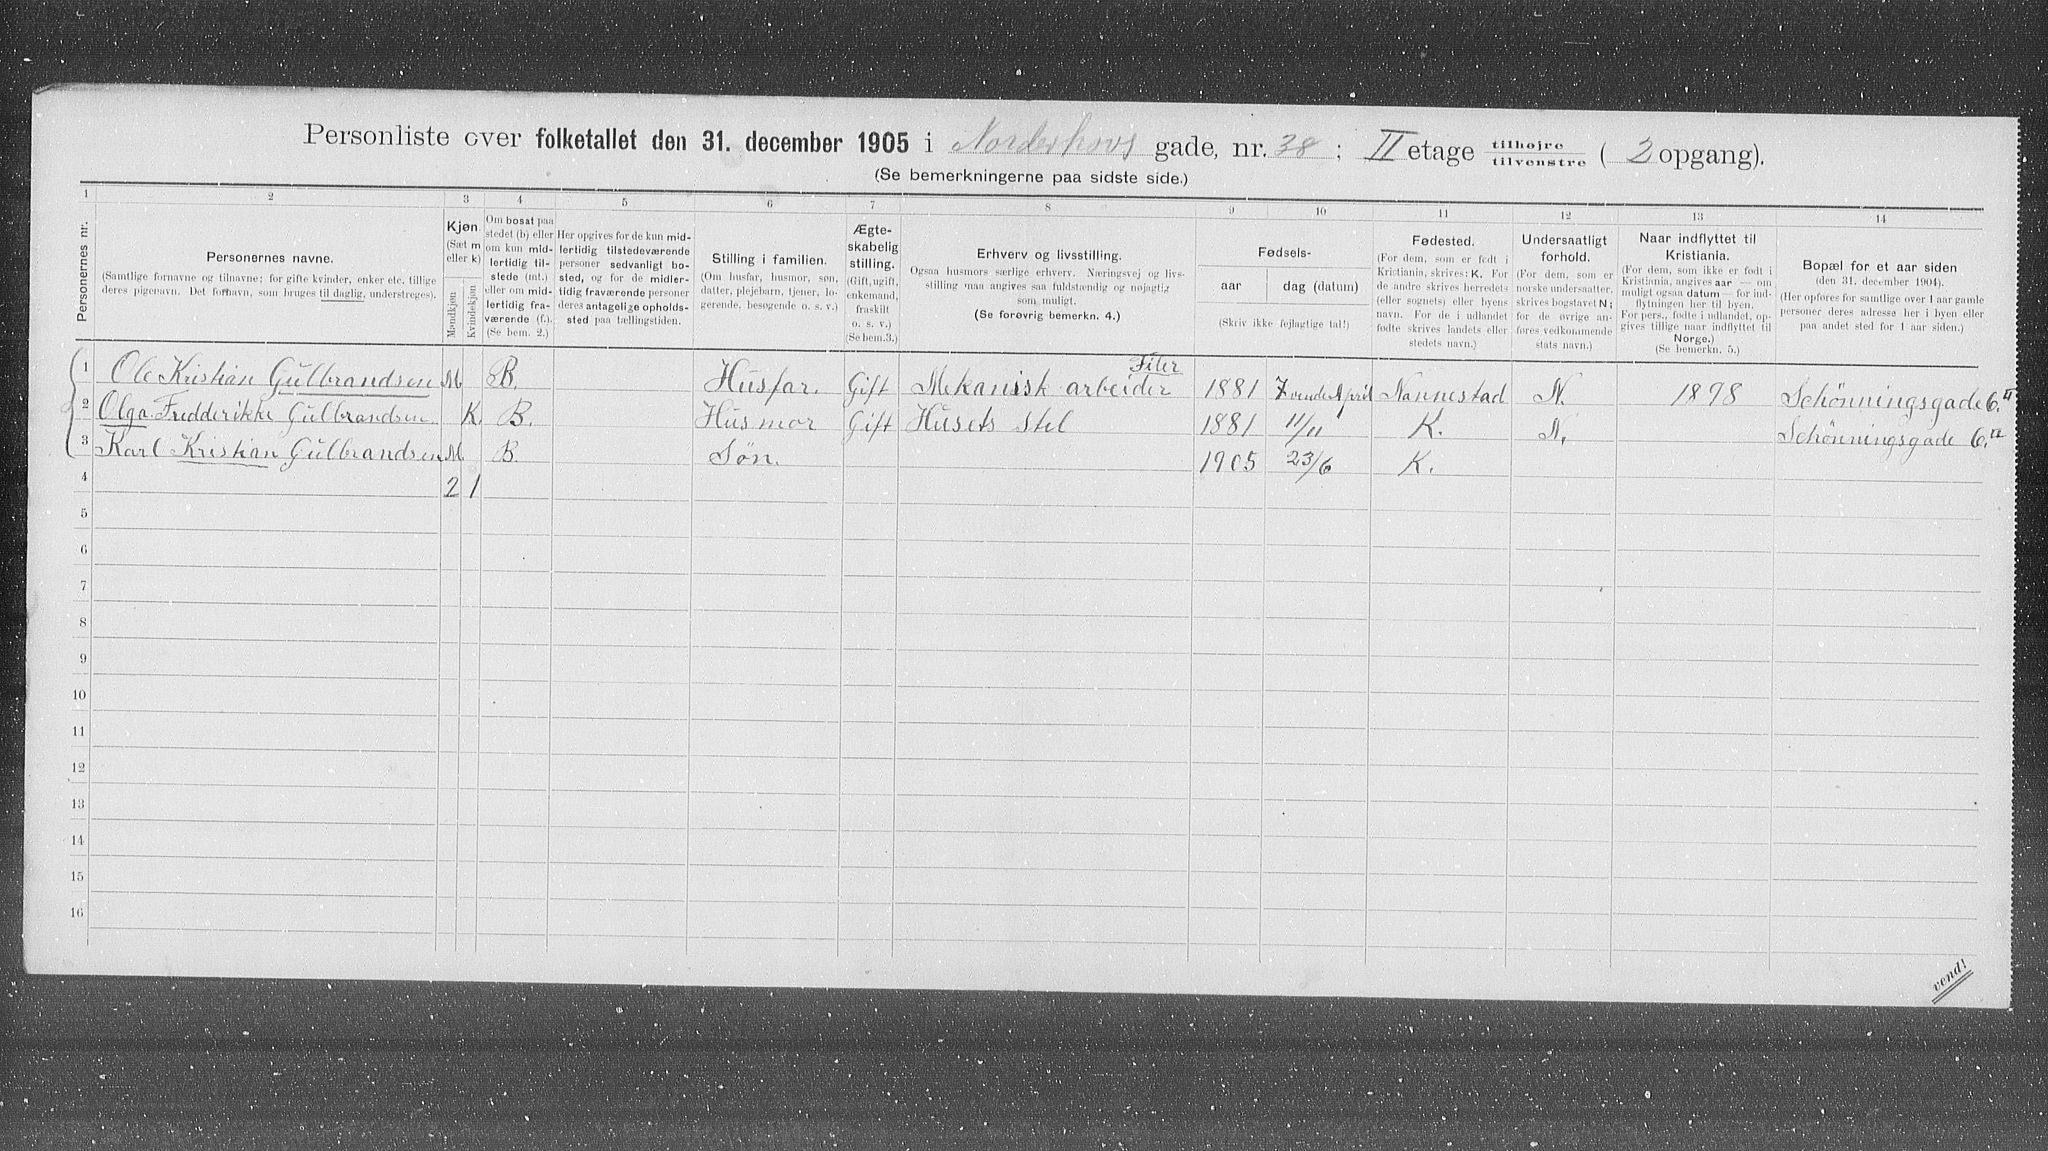 Personliste over folketallet den 31. december 1905 i Norderhovs gade, nr. 38 ; II etage tilhøjre tilvenstre ( 2 opgang).
(Se bemerkningerne paa sidste side.)
1 2 3 4 5 6 7 8 9 10 11 12 13 14
Personernes nr.
Personernes navne.
(Samtlige fornavne og tilnavne; for gifte kvinder, enker etc. tillige
deres pigenavn. Det fornavn, som bruges til daglig, understreges).
Kjøn
(Sæt m
eller k)
Mandkjøn
Kvindekjøn
Om bosat paa
stedet (b) eller
om kun mid-
lertidig til-
stede (mt.)
eller om mid-
lertidig fra-
værende (f.).
(Se bem. 2.)
Her opgives for de kun mid-
lertidig tilstedeværende
personer sedvanligt bo-
sted, og for de midler-
tidig fraværende personer
deres antagelige opholds-
sted paa tællingstiden.
Stilling i familien.
(Om husfar, husmor, søn,
datter, plejebarn, tjener, lo-
gerende, besøgende o. s. v.)
Ægte-
skabelig
stilling.
(Gift, ugift,
enkemand,
fraskilt
o. s. v.)
(Se bem. 3.)
Erhverv og livsstilling.
Ogsaa husmors særlige erhverv. Næringsvej og livs-
stilling maa angives saa fuldstændig og nøjagtig
som muligt.
(Se forøvrig bemerkn. 4.)
Fødsels-
aar
dag (datum)
(Skriv ikke fejlagtige tal!)
Fødested.
(For dem, som er født i
Kristiania, skrives: K. For
de andre skrives herredets
(eller sognets) eller byens
navn. For de i udlandet
fødte skrives landets eller
stedets navn.)
Undersaatligt
forhold.
(For dem, som er
norske undersaatter,
skrives bogstavet N;
for de øvrige an-
føres vedkommende
stats navn.)
Naar indflyttet til
Kristiania.
(For dem, som ikke er født i
Kristiania, angives aar — om
muligt ogsaa datum — for ind-
flytningen her til byen.
For pers., født i udlandet, op-
gives tillige naar indflyttet til
Norge.)
(Se bemerkn. 5.)
Bopæl for et aar siden
(den 31. december 1904).
(Her opføres for samtlige over 1 aar gamle
personer deres adresse her i byen eller
paa andet sted for 1 aar siden.)
1 Ole Kristian Gulbrandsen M B. Husfar. Gift Mekanisk arbeider Filer 1881 April Nannestad N. 1898 Schönningsgade 6. II
2 Olga Fredderikke Gulbrandsen K. B. Husmor Gift Husets stel 1881 11/11 K. N. Schönningsgade 6. II
3 Karl Kristian Gulbrandsen M B. Søn. 1905 23/6 K.
4 2 1
5
6
7
8
9
10
11
12
13
14
15
16
vend!